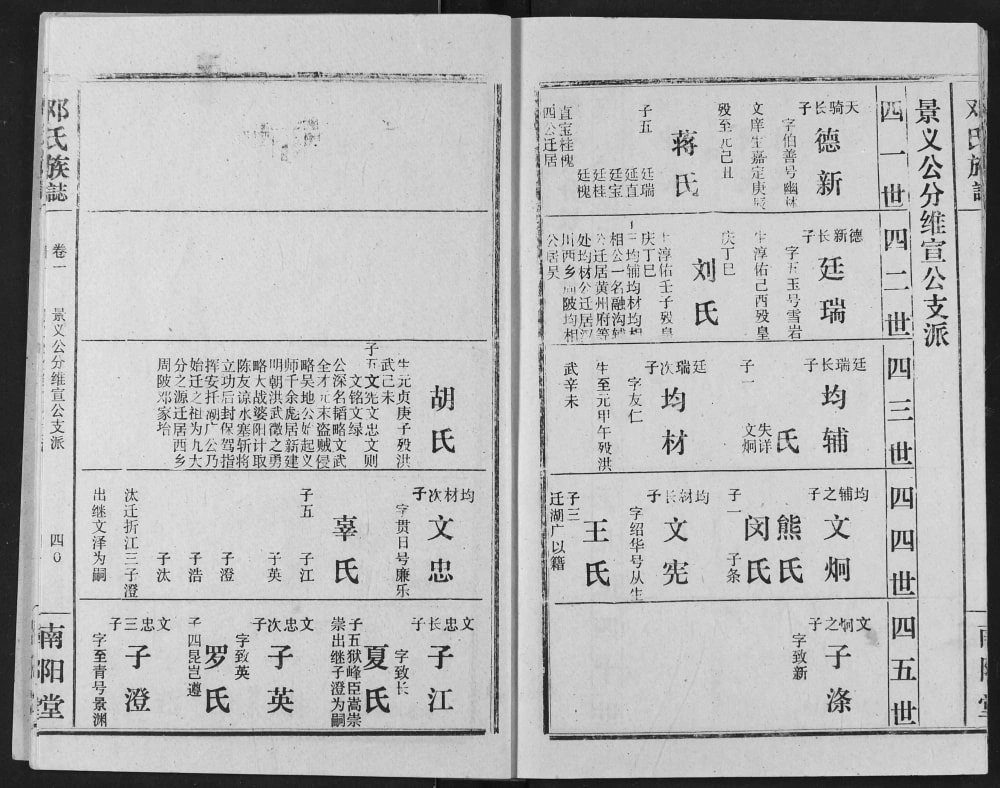 邓氏族誌
景义公分维宣公支派
四一世
天骑长子
德新
字伯善号幽林
文庠生嘉定庚辰
殁至元己丑
蒋氏
子五
廷瑞
廷直
廷宝
廷桂
廷槐
直宝桂槐
四公迁居
四二世
德新长子
廷瑞
字五玉号雪岩
生淳佑己酉殁皇
庆丁巳
刘氏
生淳佑壬子殁皇
庆丁巳
子三均辅均材均相
相公一名融沟辅
公迁居黄州府等
处均材公迁居汉
川西乡周陂均相
公居吴
四三世
廷瑞长子
均辅
氏
失详
子一
文炯
廷瑞次子
均材
字友仁
生至元甲午殁洪
武辛未
四四世
均辅之子
文炯
熊氏
闵氏
子一
子条
均材长子
文宪
字绍华号从生
王氏
子三
迁湖广以籍
四五世
文炯之子
子涤
字致新
胡氏
生元贞庚子殁洪
武己未
子五文宪文忠文则
文铭文绿
公深名韬略文武
全才元末盗贼侵
略吴地公始起义
师千余彪居新建
明朝洪武徵之勇
略大战婆阳计取
陈友谅水塞斩将
立功后封保驾指
挥安抚湖广公乃
始迁之祖为九大
分之源迁居西乡
周陂邓家坮
均材次子
文忠
字贯日号廉乐
辜氏
子五
子江
子英
子澄
子浩
子汰
汰迁折江三子澄
出继文泽为嗣
文忠长子
子江
字致长
夏氏
子五狱峰臣嵩崇
崇出继子澄为嗣
文忠次子
子英
字致英
罗氏
子四昆岂遵
文忠三子
子澄
字至青号景渊
邓氏族誌
卷一
景义公分维宣公支派
四0
南阳堂